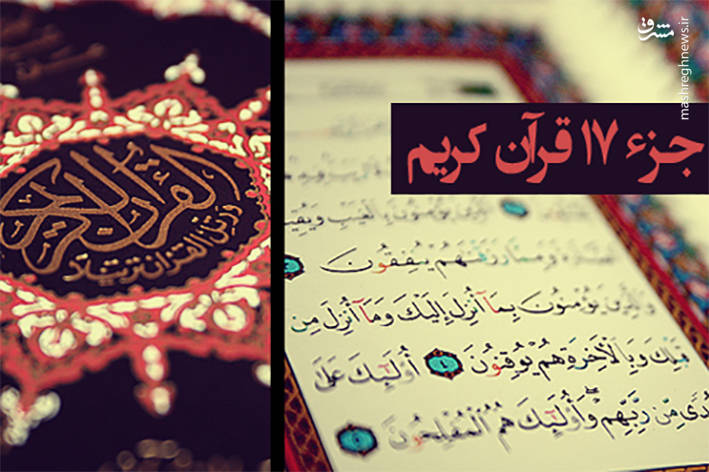 مشرق
mashreghnews.ir
جزء ۱۷ قرآن کریم
القرآن الكريم
ورتل القرآن ترتيلا
يُؤْمِنُونَ بِالْغَيْبِ وَيُقِي
وَمِمَّا رَزَقْنَاهُمْ يُنفِقُونَ
وَالَّذِينَ يُؤْمِنُونَ بِمَآ أُنزِلَ إِلَيْكَ وَمَآ أُنزِلَ مِن
قَبْلِكَ وَبِالْآخِرَةِ هُمْ يُوقِنُونَ ٤ أُولَٰٓئِكَ عَلَىٰ
هُدًى مِّن رَّبِّهِمْ وَأُولَٰٓئِكَ هُمُ الْمُفْلِحُونَ ٥